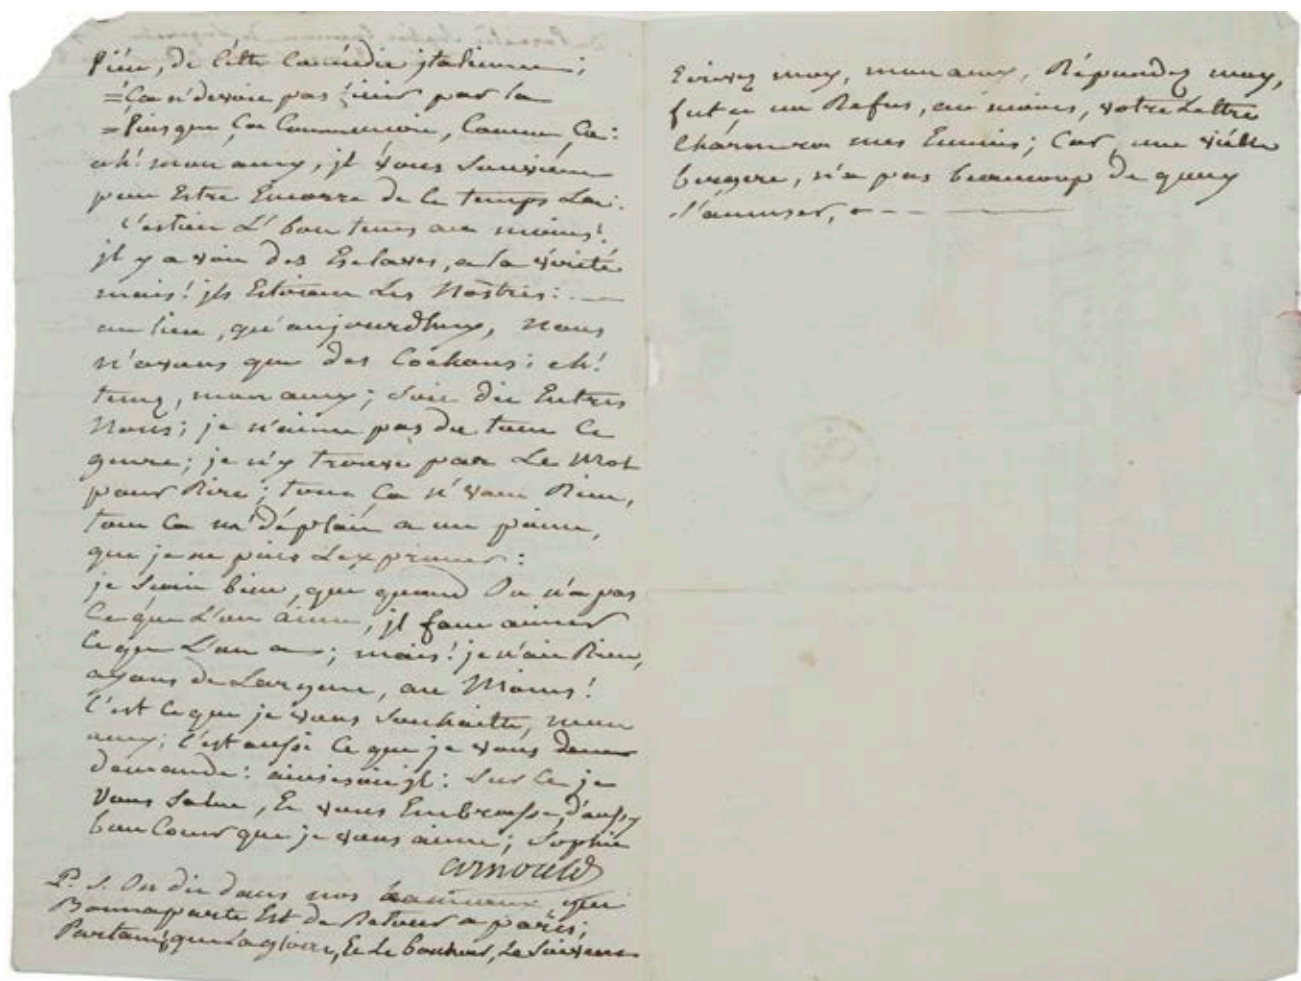 piéce, de Cétte Comédie jtalienne;
=Ça n'devoit pas finir par la
=Puisque Ça Commençoit, Comme Ça:
ah! mon amy, jl vous Souvient
peut Estre Encorre de Ce temps La:
C'estoit L' bon tems au moins!
jl y avoit des Esclaves, a la vérité
mais! jls Estoient Les Nôstres:
au lieu, qu'aujourdhuy, Nous
n'avons que des Cochons; eh!
tenez, mon amy; soit dit Entres
Nous; je n'aime pas du tout Ce
genre; je n'y trouve pas Le Mot
pour Rire; tout Ça n'vaut Rien,
tout Ça m'déplait a un point,
que je ne puis L'exprimer:
je Scait bien, que quand On n'a pas
Ce que L'on aime, jl faut aimer
Ce que L'on a; mais! je n'ait Rien,
ayons de Largent, au Moins!
C'est Ce que je vous Souhaitte, mon
amy; C'est aussi Ce que je vous
demande: ainsisoitjl: Sur Ce je
Vous Salue, Et vous Embrasse, d'aussy
bon Coeur que je vous aime; Sophie
arnould
P. S. On dit dans nos hameaux que
Bonnaparte Est de Retour a paris;
Partant, que La gloire, Et Le bonheur, Le Suivent
Ecrivez moy, mon amy, Répondez moy,
fut ce un Refus, au moins, votre Lettre
Charmera mes Ennuis; Car, une viélle
bergere, n'a pas beaucoup de quoy
s'amuser,